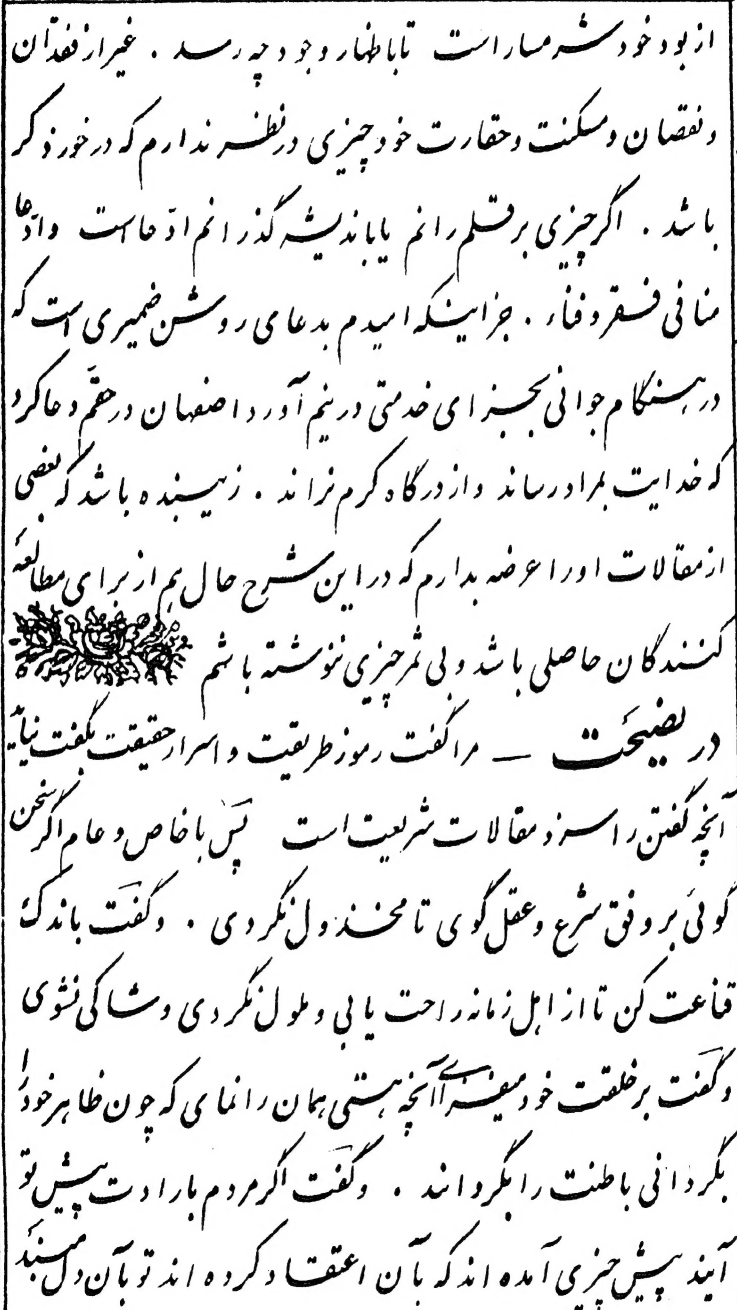 از بود خود شرمسار است تا باظهار وجود چه رسد . غیر از فقدان
و نقصان و مسکنت و حقارت خود چیزی در نظر ندارم که در خور ذکر
باشد . اگر چیزی بر قلم رانم یا باندیشه گذرانم ادّعاست وادّعا
منافی فقر و فناء . جز اینکه امیدم بدعای روشن ضمیری است که
در هنگام جوانی بجزای خدمتی در نیم آورد اصفهان در حقّم دعا کرد
که خدایت بمراد رساند و از درگاه کرم نراند . زیبنده باشد که بعضی
از مقالات او را عرضه بدارم که در این شرح حال هم از برای مطالعه
کنندگان حاصلی باشد و بی ثمر چیزی ننوشته باشم
در نصیحت — مرا گفت رموز طریقت و اسرار حقیقت بگفت نیاید
آنچه گفتن را سزد مقالات شریعت است پس با خاص و عام اگر سخن
گوئی بر وفق شرع و عقل گوی تا مخذول نگردی . و گفت باندک
قناعت کن تا از اهل زمانه راحت یابی و ملول نگردی و شاکی نشوی
و گفت بر خلقت خود میفزای آنچه هستی همان را نمای که چون ظاهر خود را
بگردانی باطنت را بگردانند . و گفت اگر مردم بارادت پیش تو
آیند پیش چیزی آمده اند که بآن اعتقاد کرده اند تو بآن دل مبند